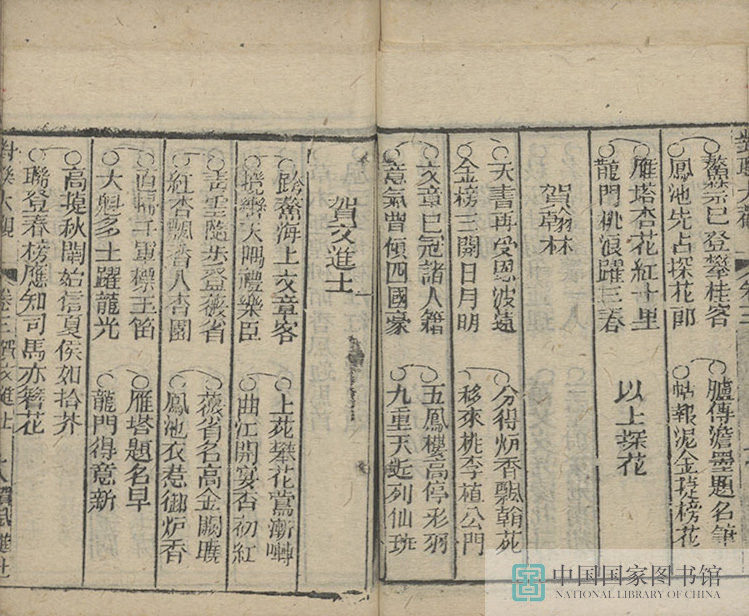 鰲禁已登攀桂客 臚傳澹墨題名筆
鳳池先占探花郎 帖報泥金捷榜花
雁塔杏花紅十里
龍門桃浪躍三春 以上探花
賀翰林
天書再受恩波遠 分得炉香飄翰苑
金榜三開日月明 移來桃李植公門
文章已冠諸人籍 五鳳樓高停彩羽
意氣曾傾四國豪 九重天近列仙班
賀文進士
跨鰲海上文章客 上苑攀花鶯漸囀
天隅禮樂臣 曲江開宴杏初紅
青雲隨步登薇省 薇省名高金闕曉
紅杏飄香入杏園 鳳池衣惹御炉香
直掃千軍標玉笛 雁塔題名早
大魁多士躍龍光 龍門得意新
高捷秋闈始信夏侯如拾芥
聯登春榜應知司馬亦簪花
對聯大觀 卷三 賀文進士
中国国家图书馆
NATIONAL LIBRARY OF CHINA